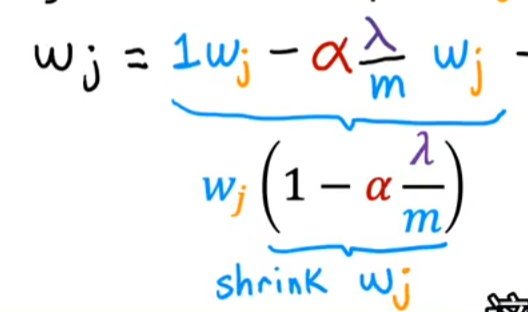 w_j = 1w_j − α λ/m w_j −
w_j (1 − α λ/m)
shrink w_j